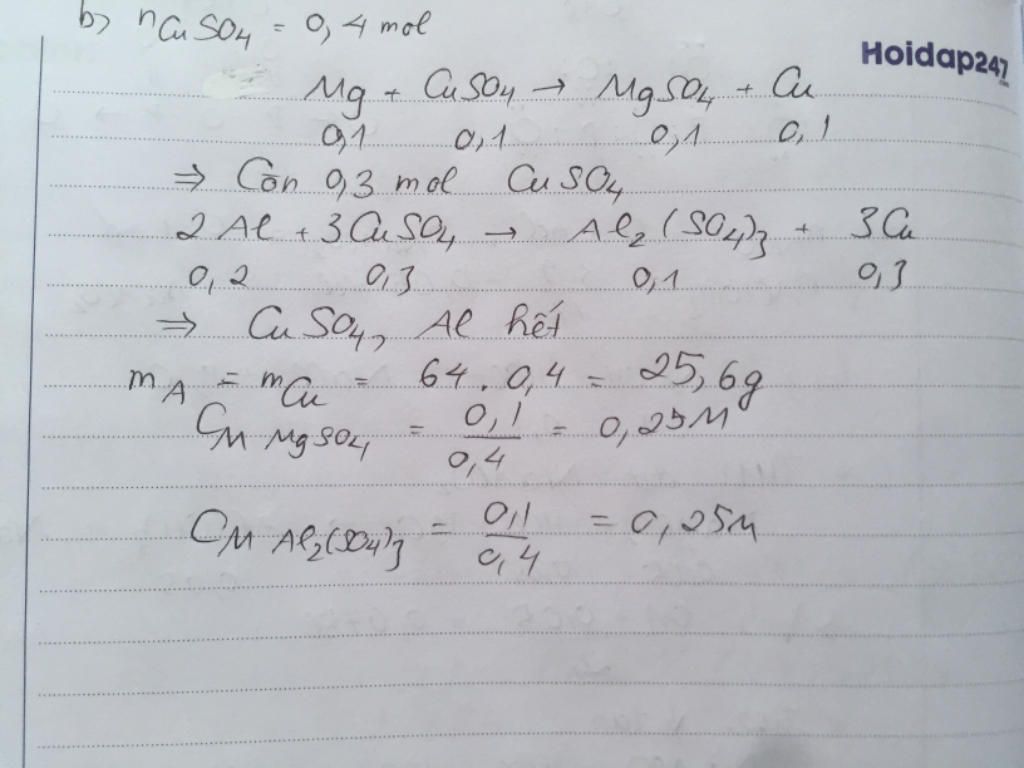 b) nCuSO4 = 0,4 mol
Hoidap247
.com
Mg + CuSO4 → MgSO4 + Cu
0,1 0,1 0,1 0,1
⇒ Còn 0,3 mol CuSO4
2Al + 3CuSO4 → Al2(SO4)3 + 3Cu
0,2 0,3 0,1 0,3
⇒ CuSO4, Al hết
mA = mCu = 64 . 0,4 = 25,6g
CM MgSO4 = 0,1/0,4 = 0,25M
CM Al2(SO4)3 = 0,1/0,4 = 0,25M